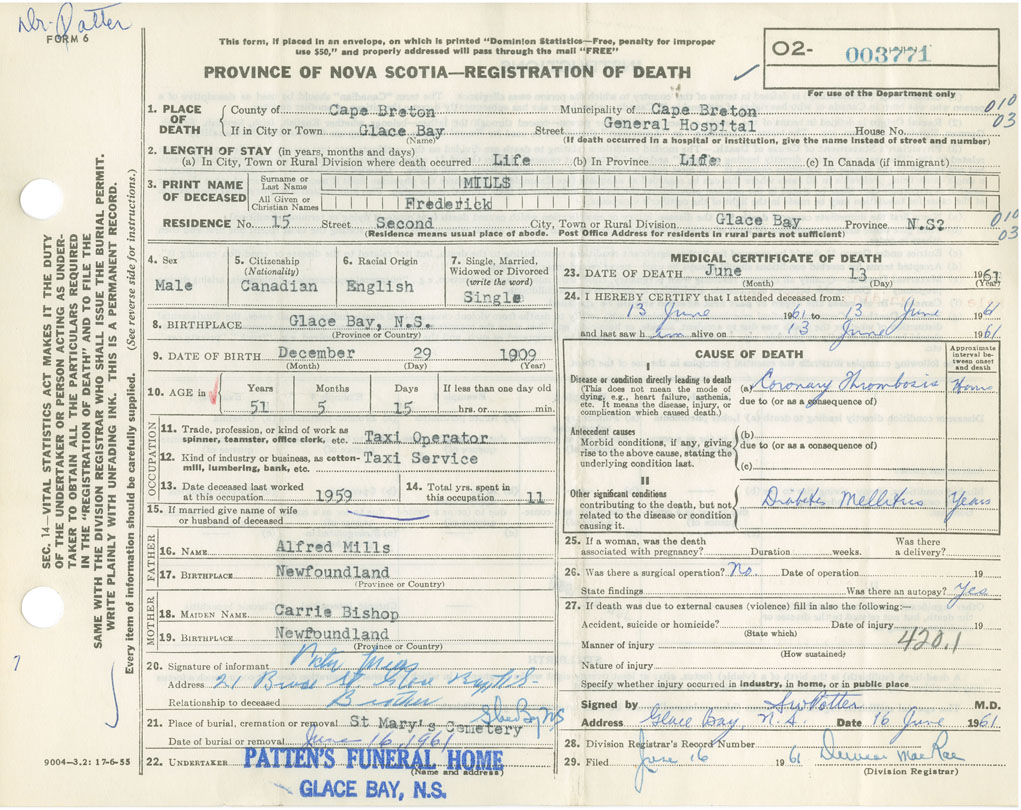 Dr. Potter
FORM 6
This form, if placed in an envelope, on which is printed "Dominion Statistics—Free, penalty for improper
use $50," and properly addressed will pass through the mail "FREE"
PROVINCE OF NOVA SCOTIA—REGISTRATION OF DEATH
02- 003771
For use of the Department only
1. PLACE OF DEATH
County of Cape Breton Municipality of Cape Breton 010
If in City or Town Glace Bay Street General Hospital House No. 03
(Name) (If death occurred in a hospital or institution, give the name instead of street and number)
2. LENGTH OF STAY (in years, months and days)
(a) In City, Town or Rural Division where death occurred Life (b) In Province Life (c) In Canada (if immigrant)
3. PRINT NAME OF DECEASED
Surname or Last Name MILLS
All Given or Christian Names Frederick
RESIDENCE No. 15 Street Second City, Town or Rural Division Glace Bay Province N.S? 010
(Residence means usual place of abode. Post Office Address for residents in rural parts not sufficient) 03
4. Sex
Male
5. Citizenship
(Nationality)
Canadian
6. Racial Origin
English
7. Single, Married,
Widowed or Divorced
(write the word)
Single
8. BIRTHPLACE Glace Bay, N.S.
(Province or Country)
9. DATE OF BIRTH December 29 1909
(Month) (Day) (Year)
10. AGE in Years Months Days If less than one day old
51 5 15 hrs. or min.
OCCUPATION
11. Trade, profession, or kind of work as
spinner, teamster, office clerk, etc. Taxi Operator
12. Kind of industry or business, as cotton-
mill, lumbering, bank, etc. Taxi Service
13. Date deceased last worked
at this occupation 1959
14. Total yrs. spent in
this occupation 11
15. If married give name of wife
or husband of deceased
FATHER
16. NAME Alfred Mills
17. BIRTHPLACE Newfoundland
(Province or Country)
MOTHER
18. MAIDEN NAME Carrie Bishop
19. BIRTHPLACE Newfoundland
(Province or Country)
20. Signature of informant
Address 21 Glace Bay N.S.
Relationship to deceased Brother
21. Place of burial, cremation or removal St Mary's Cemetery
Date of burial or removal June 16, 1961
22. UNDERTAKER PATTEN'S FUNERAL HOME
(Name and address)
GLACE BAY, N.S.
MEDICAL CERTIFICATE OF DEATH
23. DATE OF DEATH June 13 1961
(Month) (Day) (Year)
24. I HEREBY CERTIFY that I attended deceased from:
13 June 1961 to 13 June 1961
and last saw him alive on 13 June 1961
CAUSE OF DEATH
Approximate
interval be-
tween onset
and death
I
Disease or condition directly leading to death
(This does not mean the mode of
dying, e.g., heart failure, asthenia,
etc. It means the disease, injury, or
complication which caused death.)
(a) Coronary Thrombosis
due to (or as a consequence of)
Antecedent causes
Morbid conditions, if any, giving
rise to the above cause, stating the
underlying condition last.
(b)
due to (or as a consequence of)
(c)
II
Other significant conditions
contributing to the death, but not
related to the disease or condition
causing it.
Diabetes Mellitus Years
25. If a woman, was the death
associated with pregnancy? Duration weeks. Was there
a delivery?
26. Was there a surgical operation? No Date of operation 19
State findings Was there an autopsy? Yes
27. If death was due to external causes (violence) fill in also the following:—
Accident, suicide or homicide? Date of injury 19
(State which)
420.1
Manner of injury
(How sustained)
Nature of injury
Specify whether injury occurred in industry, in home, or in public place
Signed by SW Potter M.D.
Address Glace Bay, N.S. Date 16 June 1961
28. Division Registrar's Record Number
29. Filed June 16 1961 MacRae
(Division Registrar)
SEC. 14—VITAL STATISTICS ACT MAKES IT THE DUTY
OF THE UNDERTAKER OR PERSON ACTING AS UNDER-
TAKER TO OBTAIN ALL THE PARTICULARS REQUIRED
IN THE "REGISTRATION OF DEATH" AND TO FILE THE
SAME WITH THE DIVISION REGISTRAR WHO SHALL ISSUE THE BURIAL PERMIT.
WRITE PLAINLY WITH UNFADING INK. THIS IS A PERMANENT RECORD.
Every item of information should be carefully supplied. (See reverse side for instructions.)
9004—3.2: 17-6-55